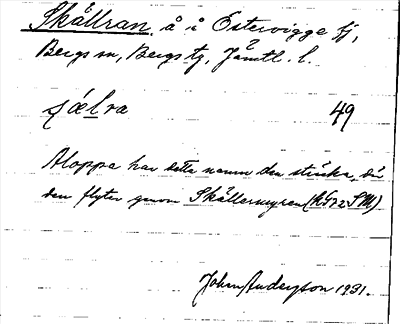 Skällran å i Östervigge fj,
Bergs sn, Bergs tg, Jämtl. l.
ʃæl̥ra 49
Aloppa har detta namn den sträcka, där
den flyter genom Skällermyren (kG72SM).
John Anderzon 1931.